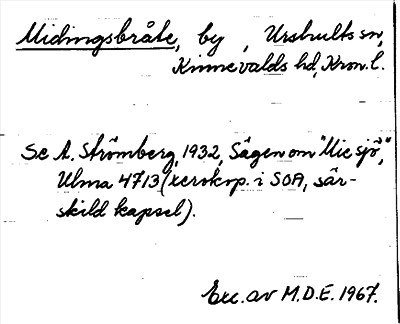 Midingsbråte, by , Urshults sn,
Kinnevalds hd, Kron. l.
Se A. Strömberg, 1932, Sägen om "Mie sjö",
Ulma 4713 (xerokop. i SOA, sär-
skild kapsel).
Exc. av M.D.E. 1967.